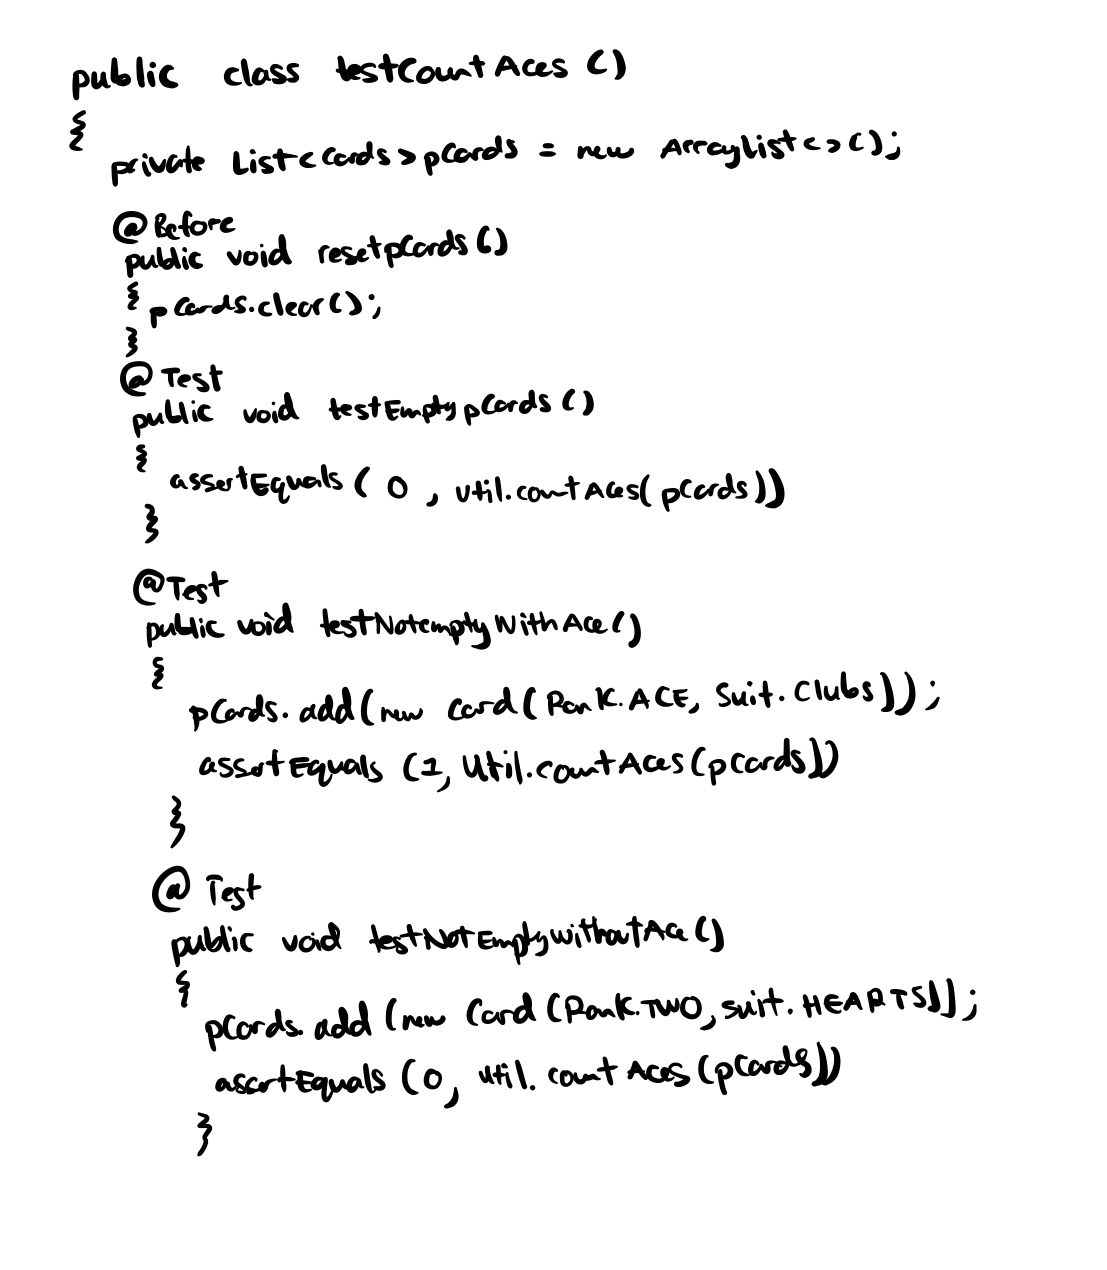 public class testCountAces ()
{
private List<Cards> pCards = new ArrayList<>();
@Before
public void resetpCards()
{ pCards.clear();
}
@Test
public void testEmptypCards()
{
assertEquals ( 0 , util.countAces( pCards))
}
@Test
public void testNotemptyWithAce()
{
pCards. add(new Card( Rank.ACE, Suit.Clubs));
assertEquals (1, Util.countAces(pCards))
}
@ Test
public void testNotEmptywithoutAce()
{
pCards. add (new Card (Rank.TWO, suit.HEARTS));
assertEquals (0, util. countAces (pCards))
}